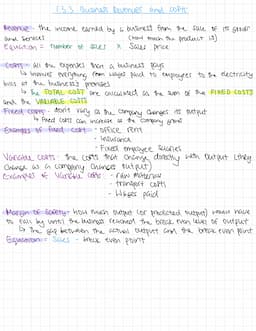 1.3.3 Business Revenues and costs
Revenue - the income earned by a business from the sale of its goods
and services (how much the product is)
Equation = number of sales × sales price
Costs - all the expenses that a business pays
↳ involves everything from wages paid to employees to the electricity
bills at the business's premises
↳ the TOTAL COST are calculated as the sum of the FIXED COSTS
and the VARIABLE COSTS
Fixed costs - don't vary as the company changes its output
↳ fixed costs can increase as the company grows
Examples of fixed costs - office rent
- insurance
- fixed employee salaries
Variable costs - the costs that change directly with output (they
change as a company changes output)
Examples of variable costs - raw materials
- transport costs
- wages paid
Margin of Safety - how much output (or predicted output) would have
to fall by until the business reached the break even level of output
↳ the gap between the actual output and the break even point
Equation = Sales - break even point